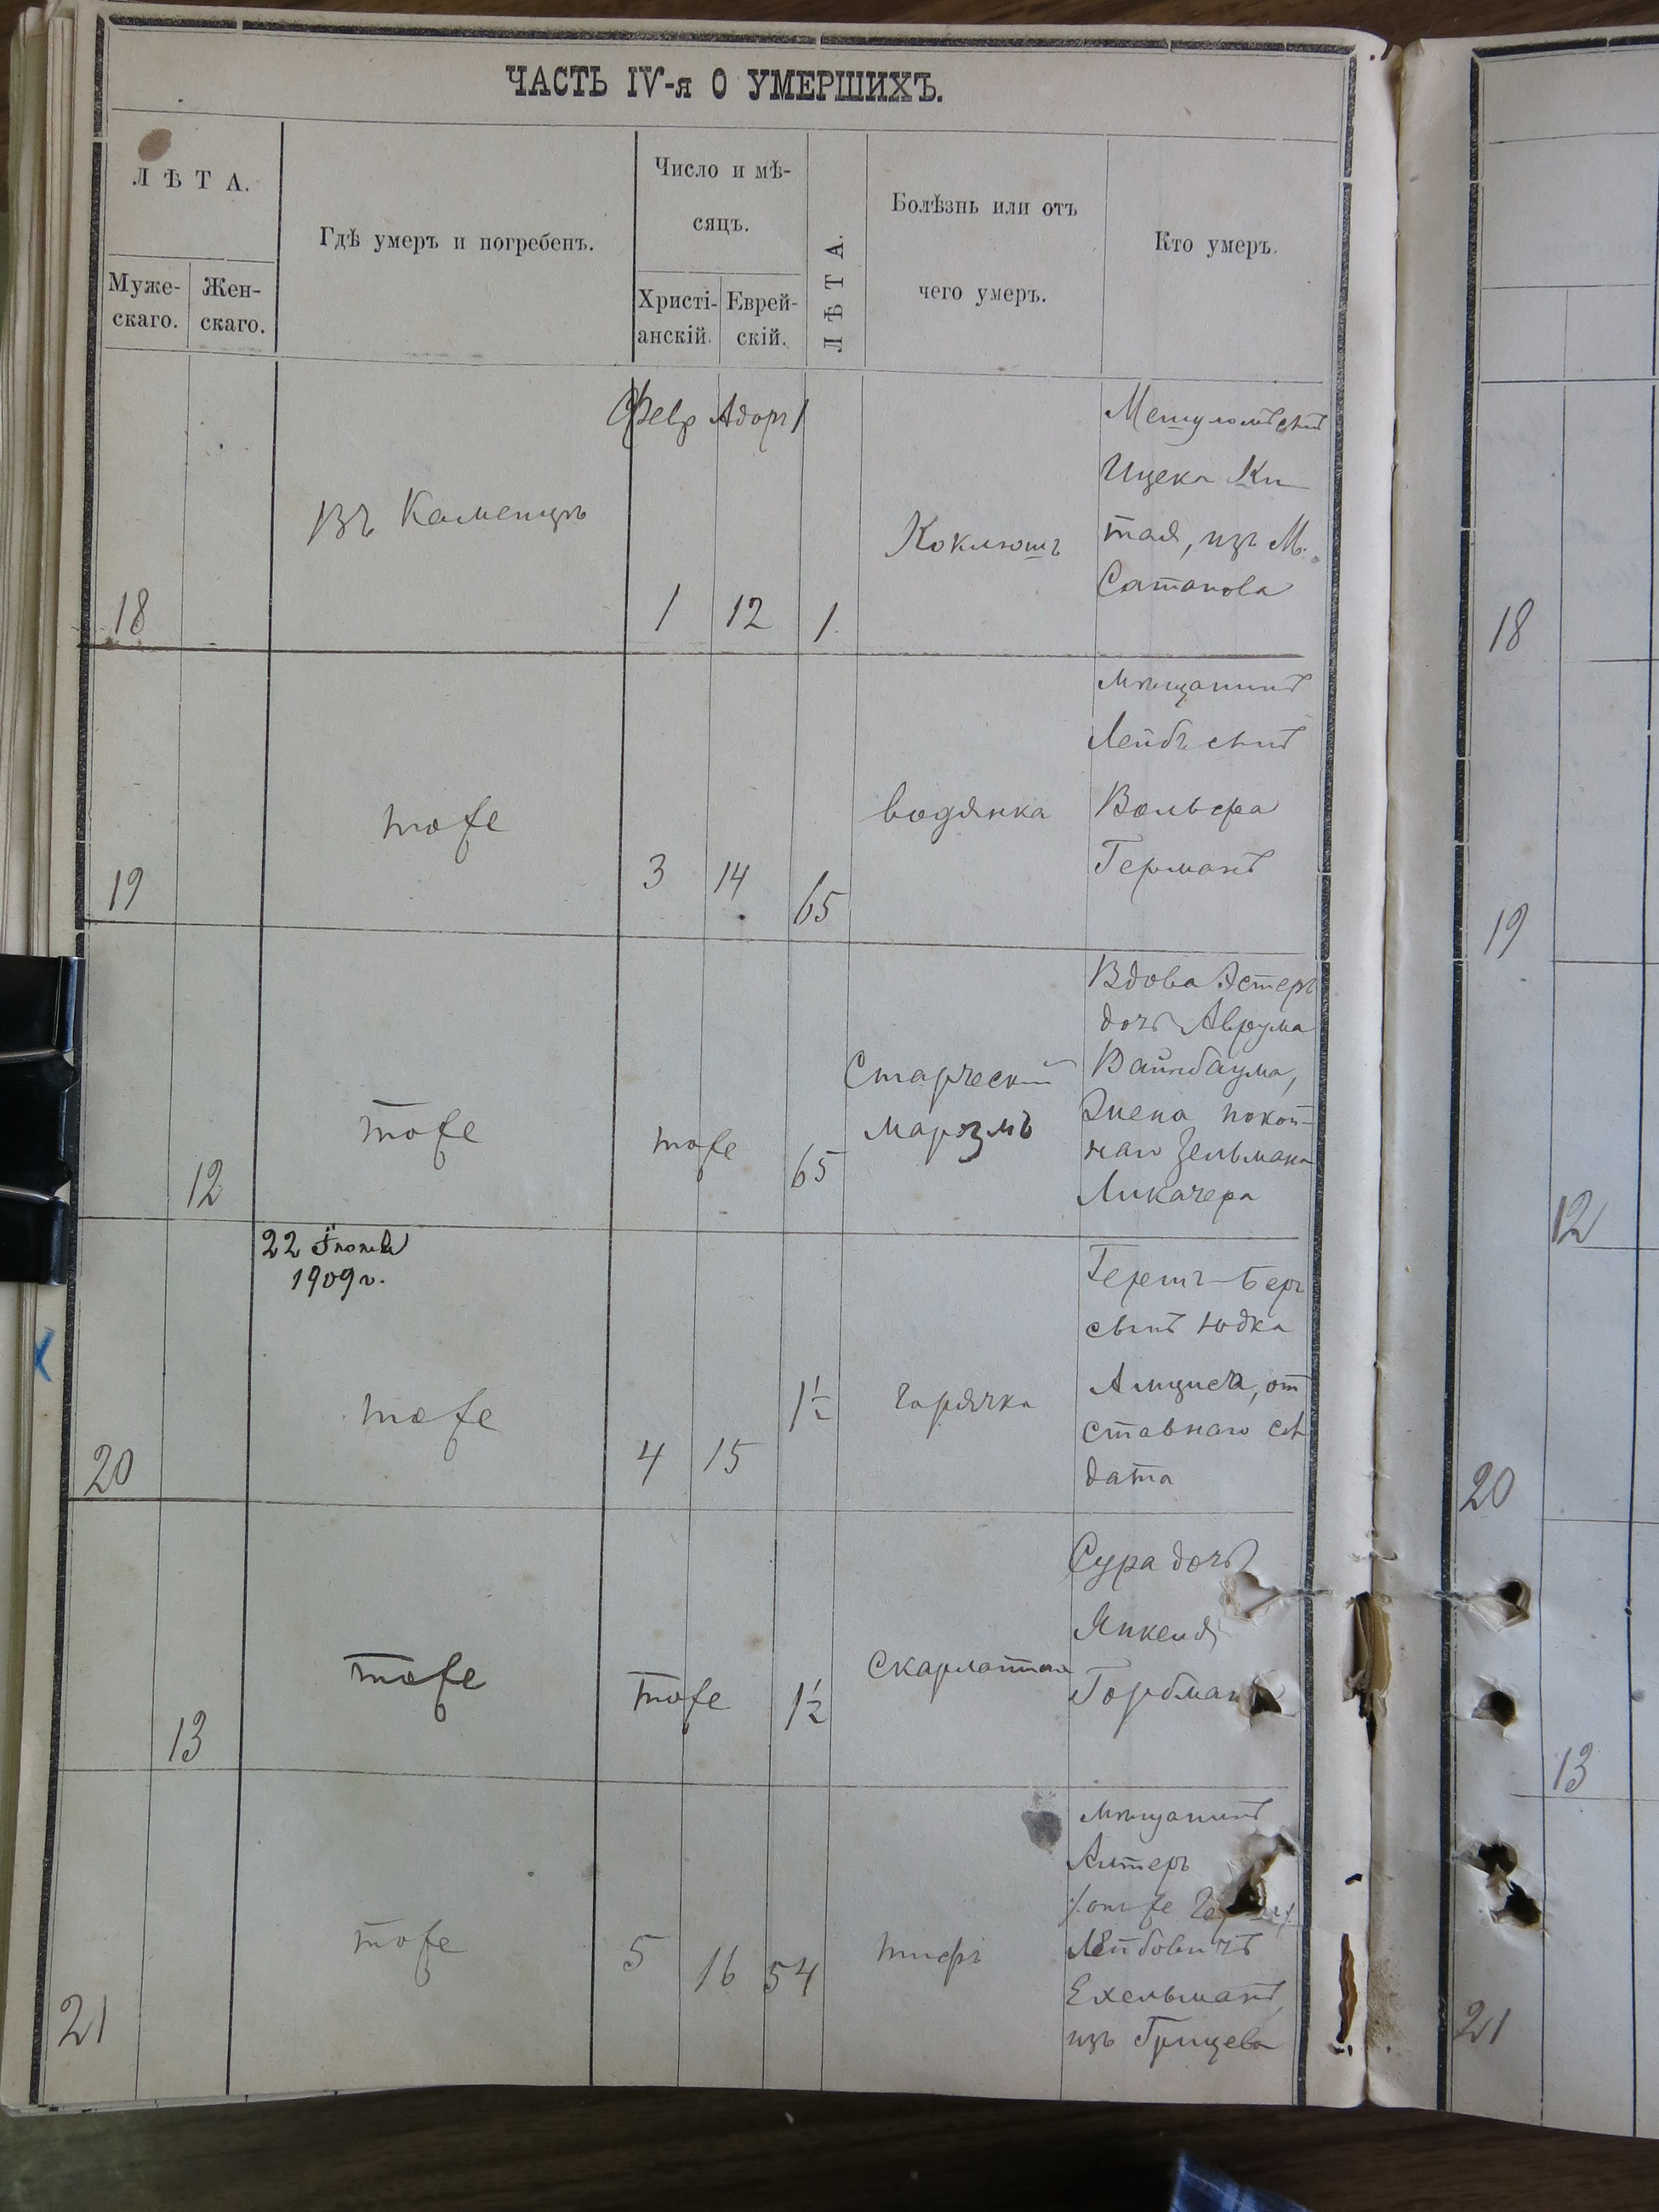 ЧАСТЬ IV-я О УМЕРШИХЪ.
ЛѢТА.
Муже-
скаго.
Жен-
скаго.
Гдѣ умеръ и погребенъ.
Число и мѣ-
сяцъ.
Христі-
анскій.
Еврей-
скій.
ЛѢТА.
Болѣзнь или отъ
чего умеръ.
Кто умеръ.
Февр Адоръ 1
18
въ Каменцѣ
1
12
1
Коклюшъ
Мешуломъ сынъ
Ицека Ки-
тая, изъ М.
Сатанова
19
тоже
3
14
65
водянка
мѣщанинъ
Лейбъ сынъ
Вольфа
Германъ
12
тоже
тоже
65
Старческій
маразмъ
Вдова Эстеръ
дочь Аврума
Вайнбаума,
жена покой-
наго Зельмана
Ликачера
22 Іюня
1909 г.
20
тоже
4
15
1½
горячка
Гершъ-Беръ
сынъ Юдка
Алциса, от
ставнаго сол
дата
13
тоже
тоже
1½
Скарлатина
Сура дочь
Янкеля
Горбмана
21
тоже
5
16
54
тифъ
мѣщанинъ
Алтеръ
/:онъ же
Лейбовичъ
Ехельманъ,
изъ Грицева
18
19
12
20
13
21